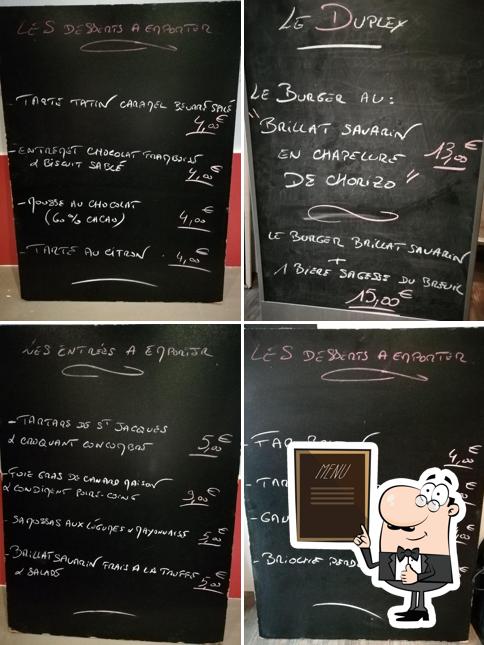 LES DESSERTS A EMPORTER
- TARTE TATIN CARAMEL BEURRE SALÉ
4,00€
- ENTREMET CHOCOLAT FRAMBOISE
& BISCUIT SABLÉ
4,00€
- MOUSSE AU CHOCOLAT
(60% CACAO)
4,00€
- TARTE AU CITRON
4,00€
LE DUPLEX
LE BURGER AU :
"BRILLAT SAVARIN
EN CHAPELURE
DE CHORIZO"
13,00€
LE BURGER BRILLAT SAVARIN
+
1 BIÈRE SAGESSE DU BREUIL
15,00€
NES ENTRÉES A EMPORTER
- TARTARE DE ST JACQUES
& CROQUANT CONCOMBRE
5,00€
- FOIE GRAS DE CANARD MAISON
& CONDIMENT POIRE-COING
9,00€
- SAMOSSAS AUX LÉGUMES & MAYONNAISE
5,00€
- BRILLAT SAVARIN FRAIS A LA TRUFFE
& SALADE
5,00€
LES DESSERTS A EMPORTER
- TAR
4,00€
- TAR
- BRIOCHE PERD
MENU